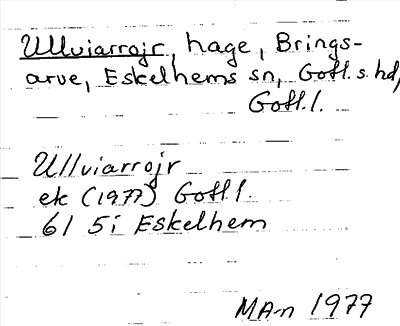 Ullviarrojr, hage, Brings-
arve, Eskelhems sn, Gotl. s. hd,
Gotl. l.
Ullviarrojr
ek (1977) Gotl l.
6I 5i Eskelhem
MA-n 1977